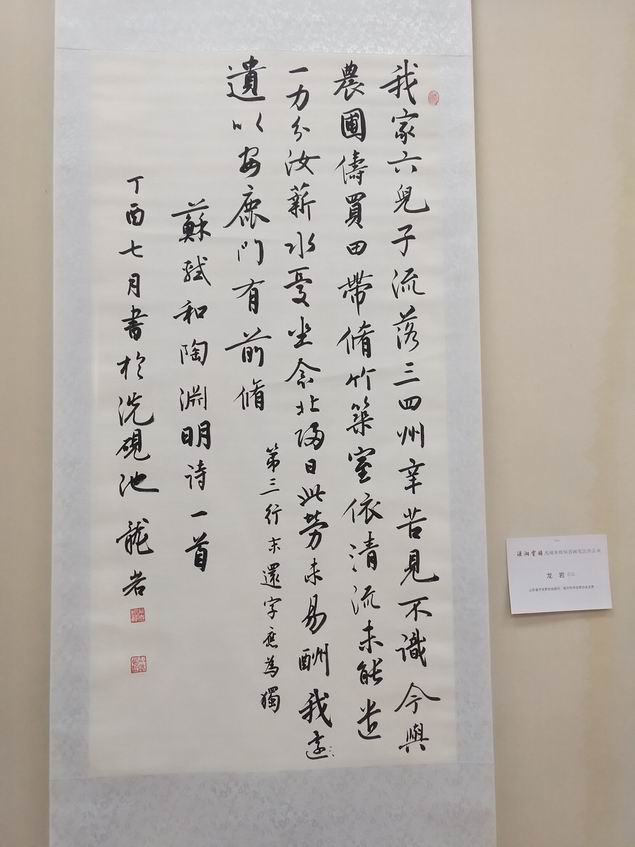 我家六兒子流落三四州辛苦見不識今與
農圃儔買田帶脩竹築室依清流未能遣
一力分汝薪水憂坐念北歸日此勞未易酬我還
遺以安鹿門有前脩
第三行末還字應為獨
蘇軾和陶淵明詩一首
丁酉七月書於洗硯池龍岩
龙岩